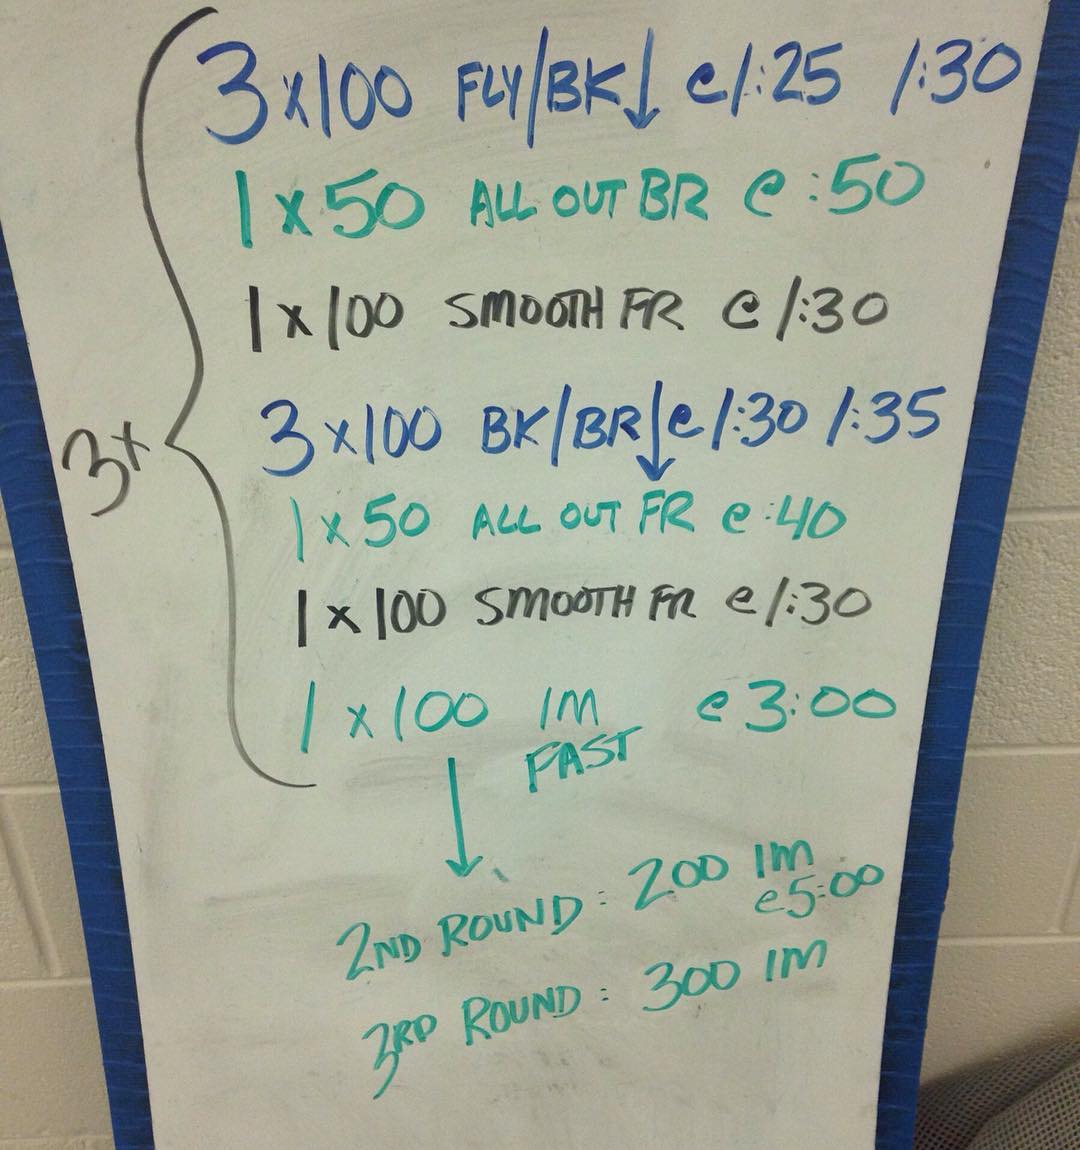 3x100 FLY/BK↓ @ 1:25 1:30
1 x 50 ALL OUT BR @ :50
1 x 100 SMOOTH FR @ 1:30
3x
3 x 100 BK/BR↓@ 1:30 1:35
1 x 50 ALL OUT FR @ :40
1 x 100 SMOOTH FR @ 1:30
1 x 100 IM @ 3:00
FAST
2ND ROUND: 200 IM
@5:00
3RD ROUND: 300 IM